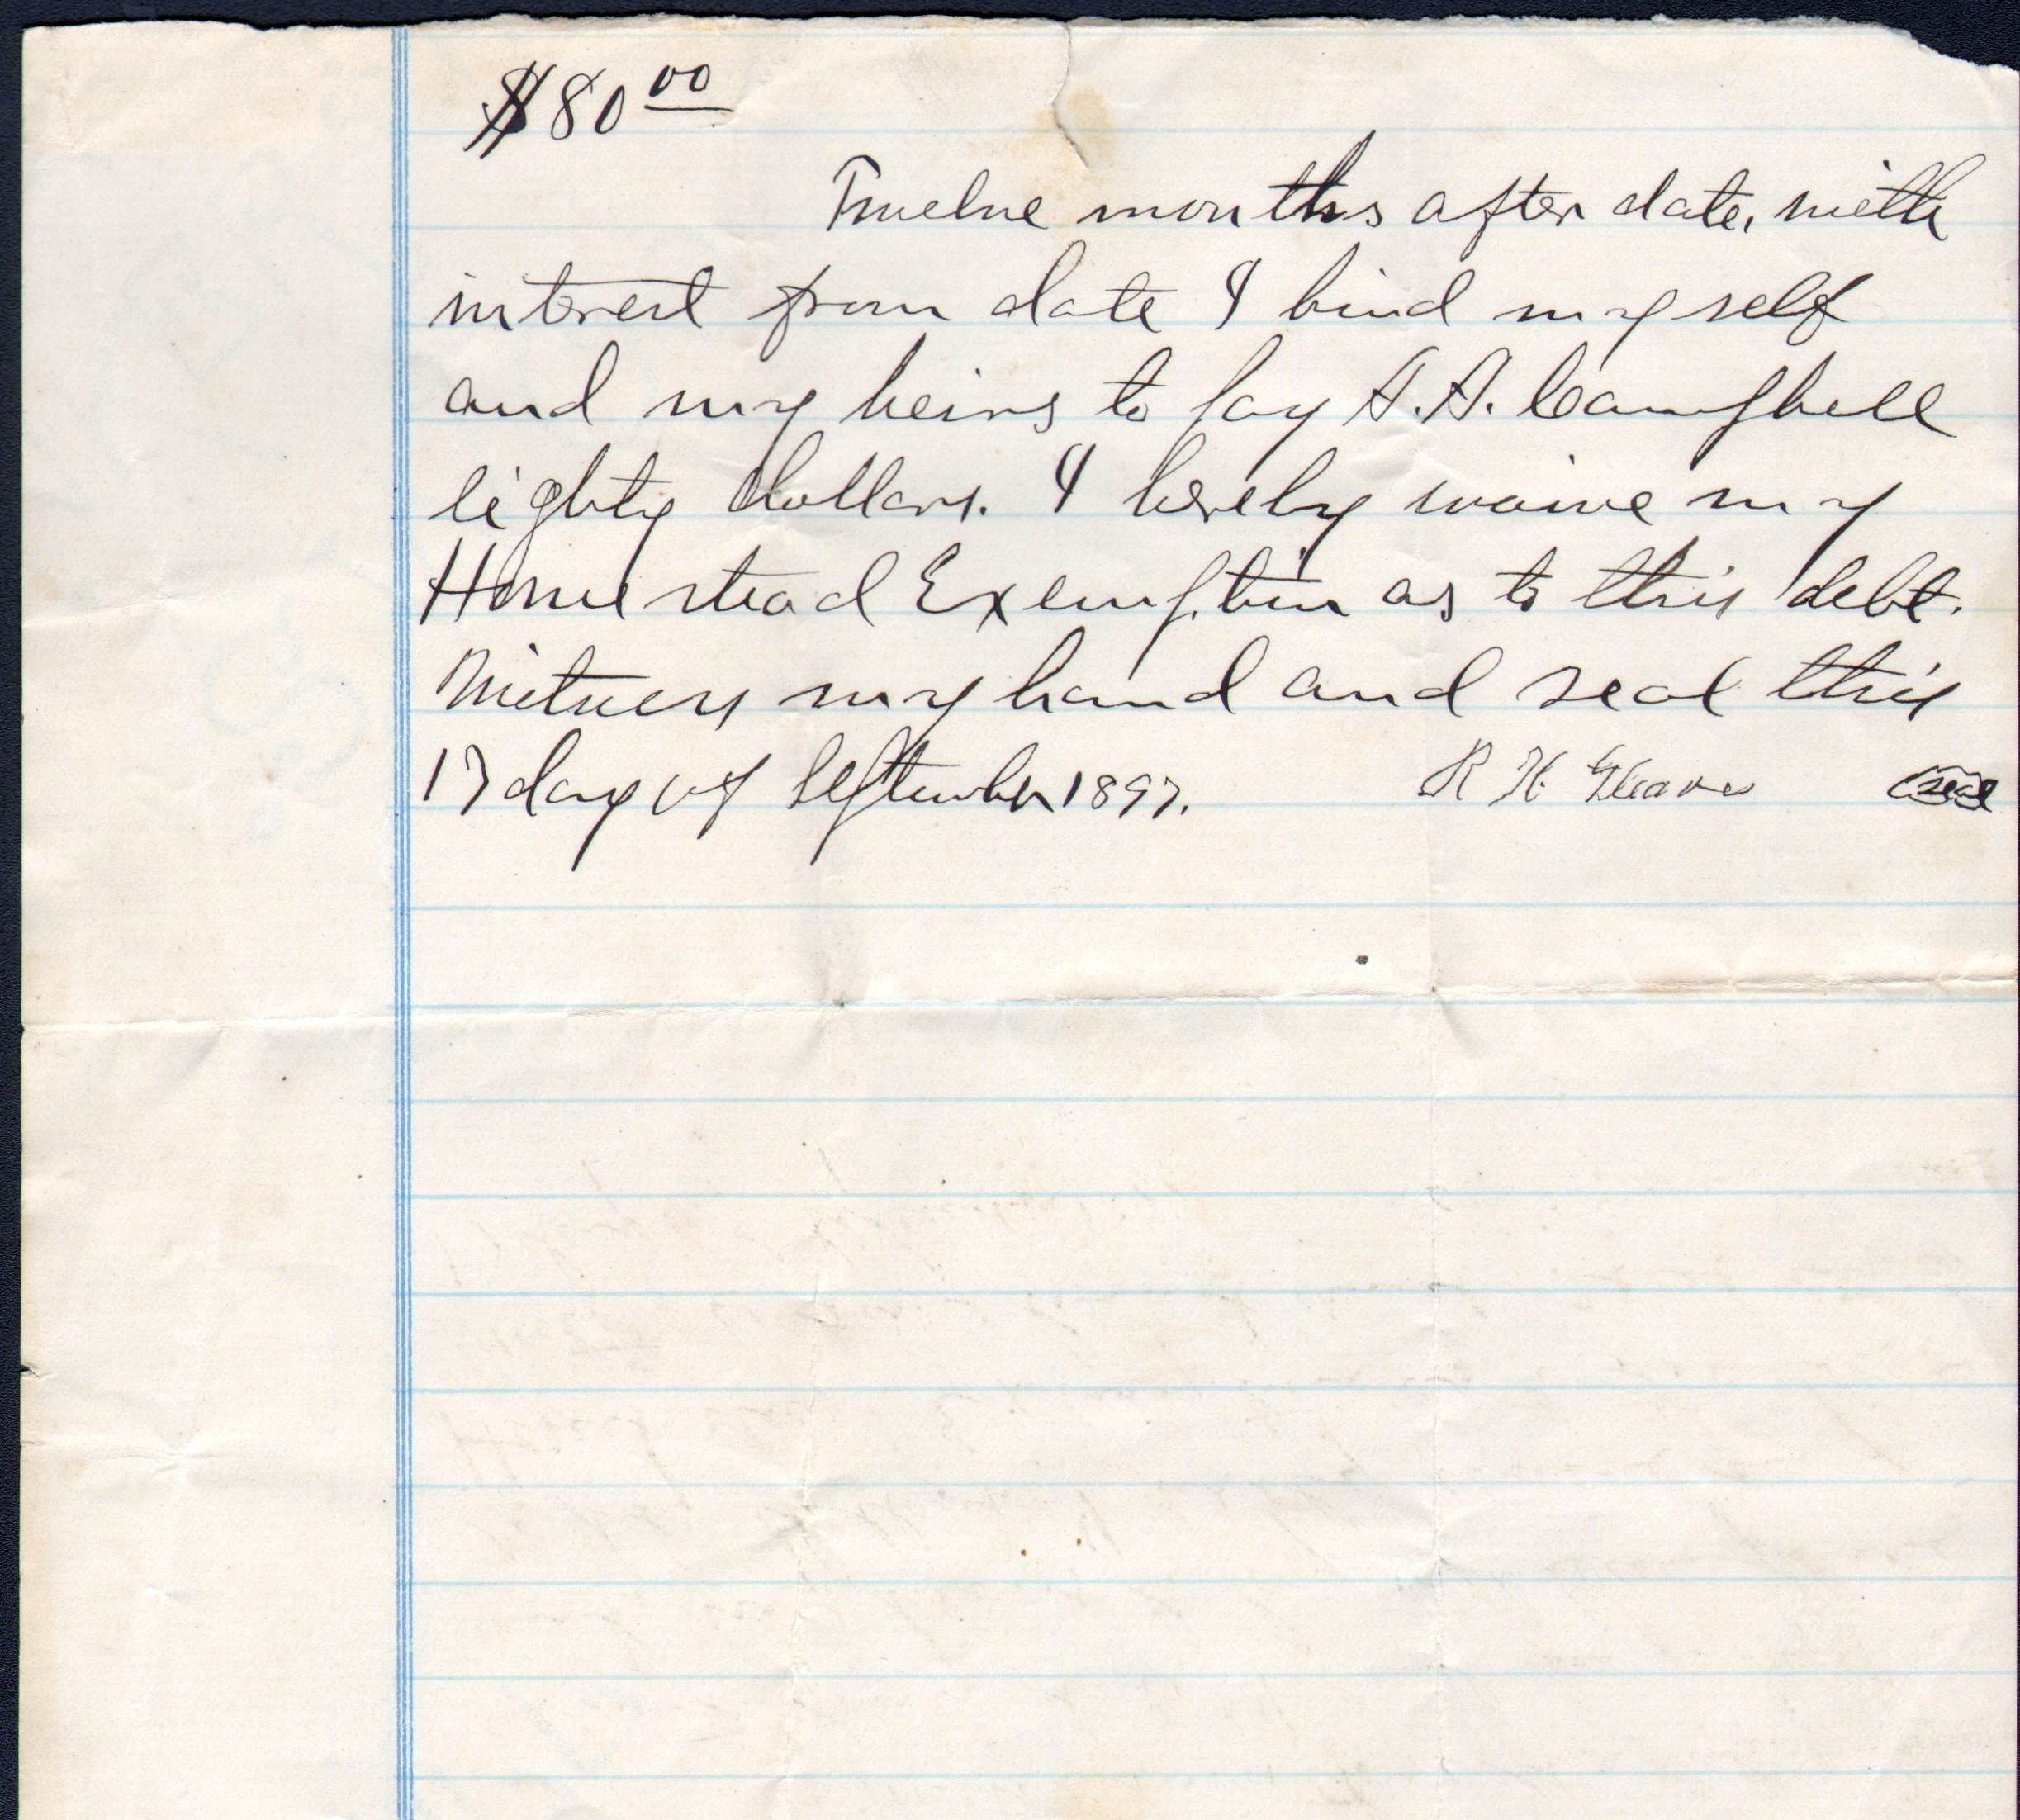 $80 00
Twelve months after date, with
interest from date I bind myself
and my heirs to pay A. A. Campbell
eighty dollars. I hereby waive my
Homestead Exemption as to this debt.
Witness my hand and seal this
17 day of September 1897. R H Gleaves seal